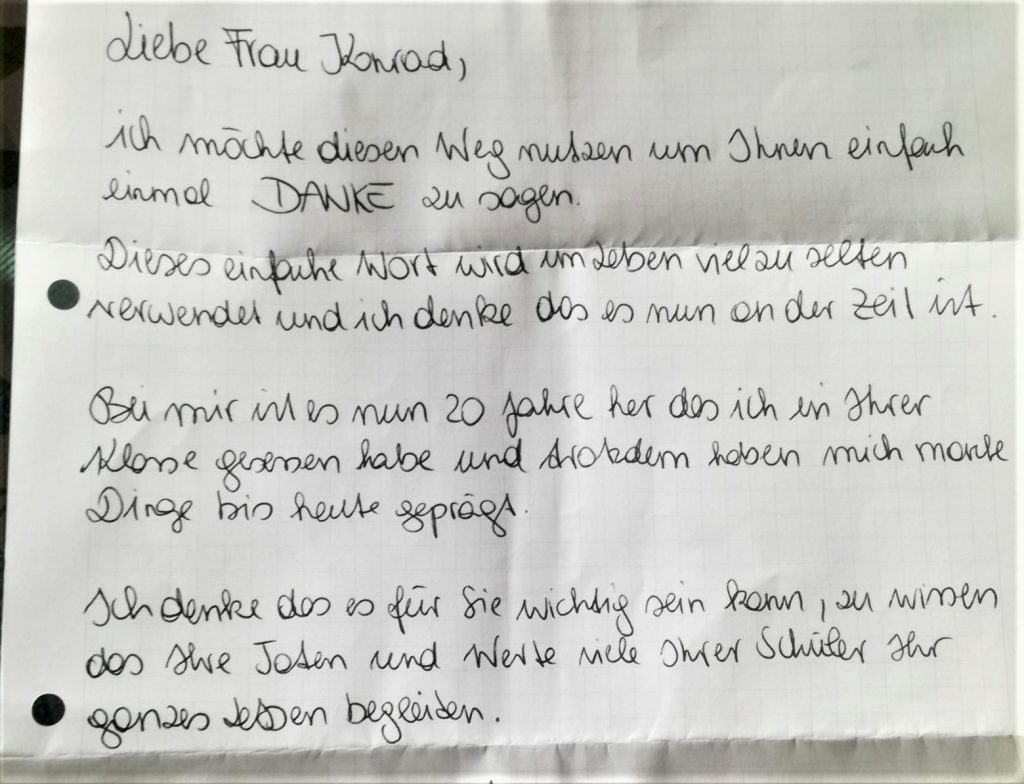 Liebe Frau Konrad,
ich möchte diesen Weg nutzen um Ihnen einfach
einmal DANKE zu sagen.
Dieses einfache Wort wird im Leben viel zu selten
verwendet und ich denke das es nun an der Zeit ist.
Bei mir ist es nun 20 Jahre her das ich in Ihrer
Klasse gesessen habe und trotzdem haben mich manche
Dinge bis heute geprägt.
Ich denke das es für Sie wichtig sein kann, zu wissen
das Ihre Taten und Werte viele Ihrer Schüler Ihr
ganzes Leben begleiten.